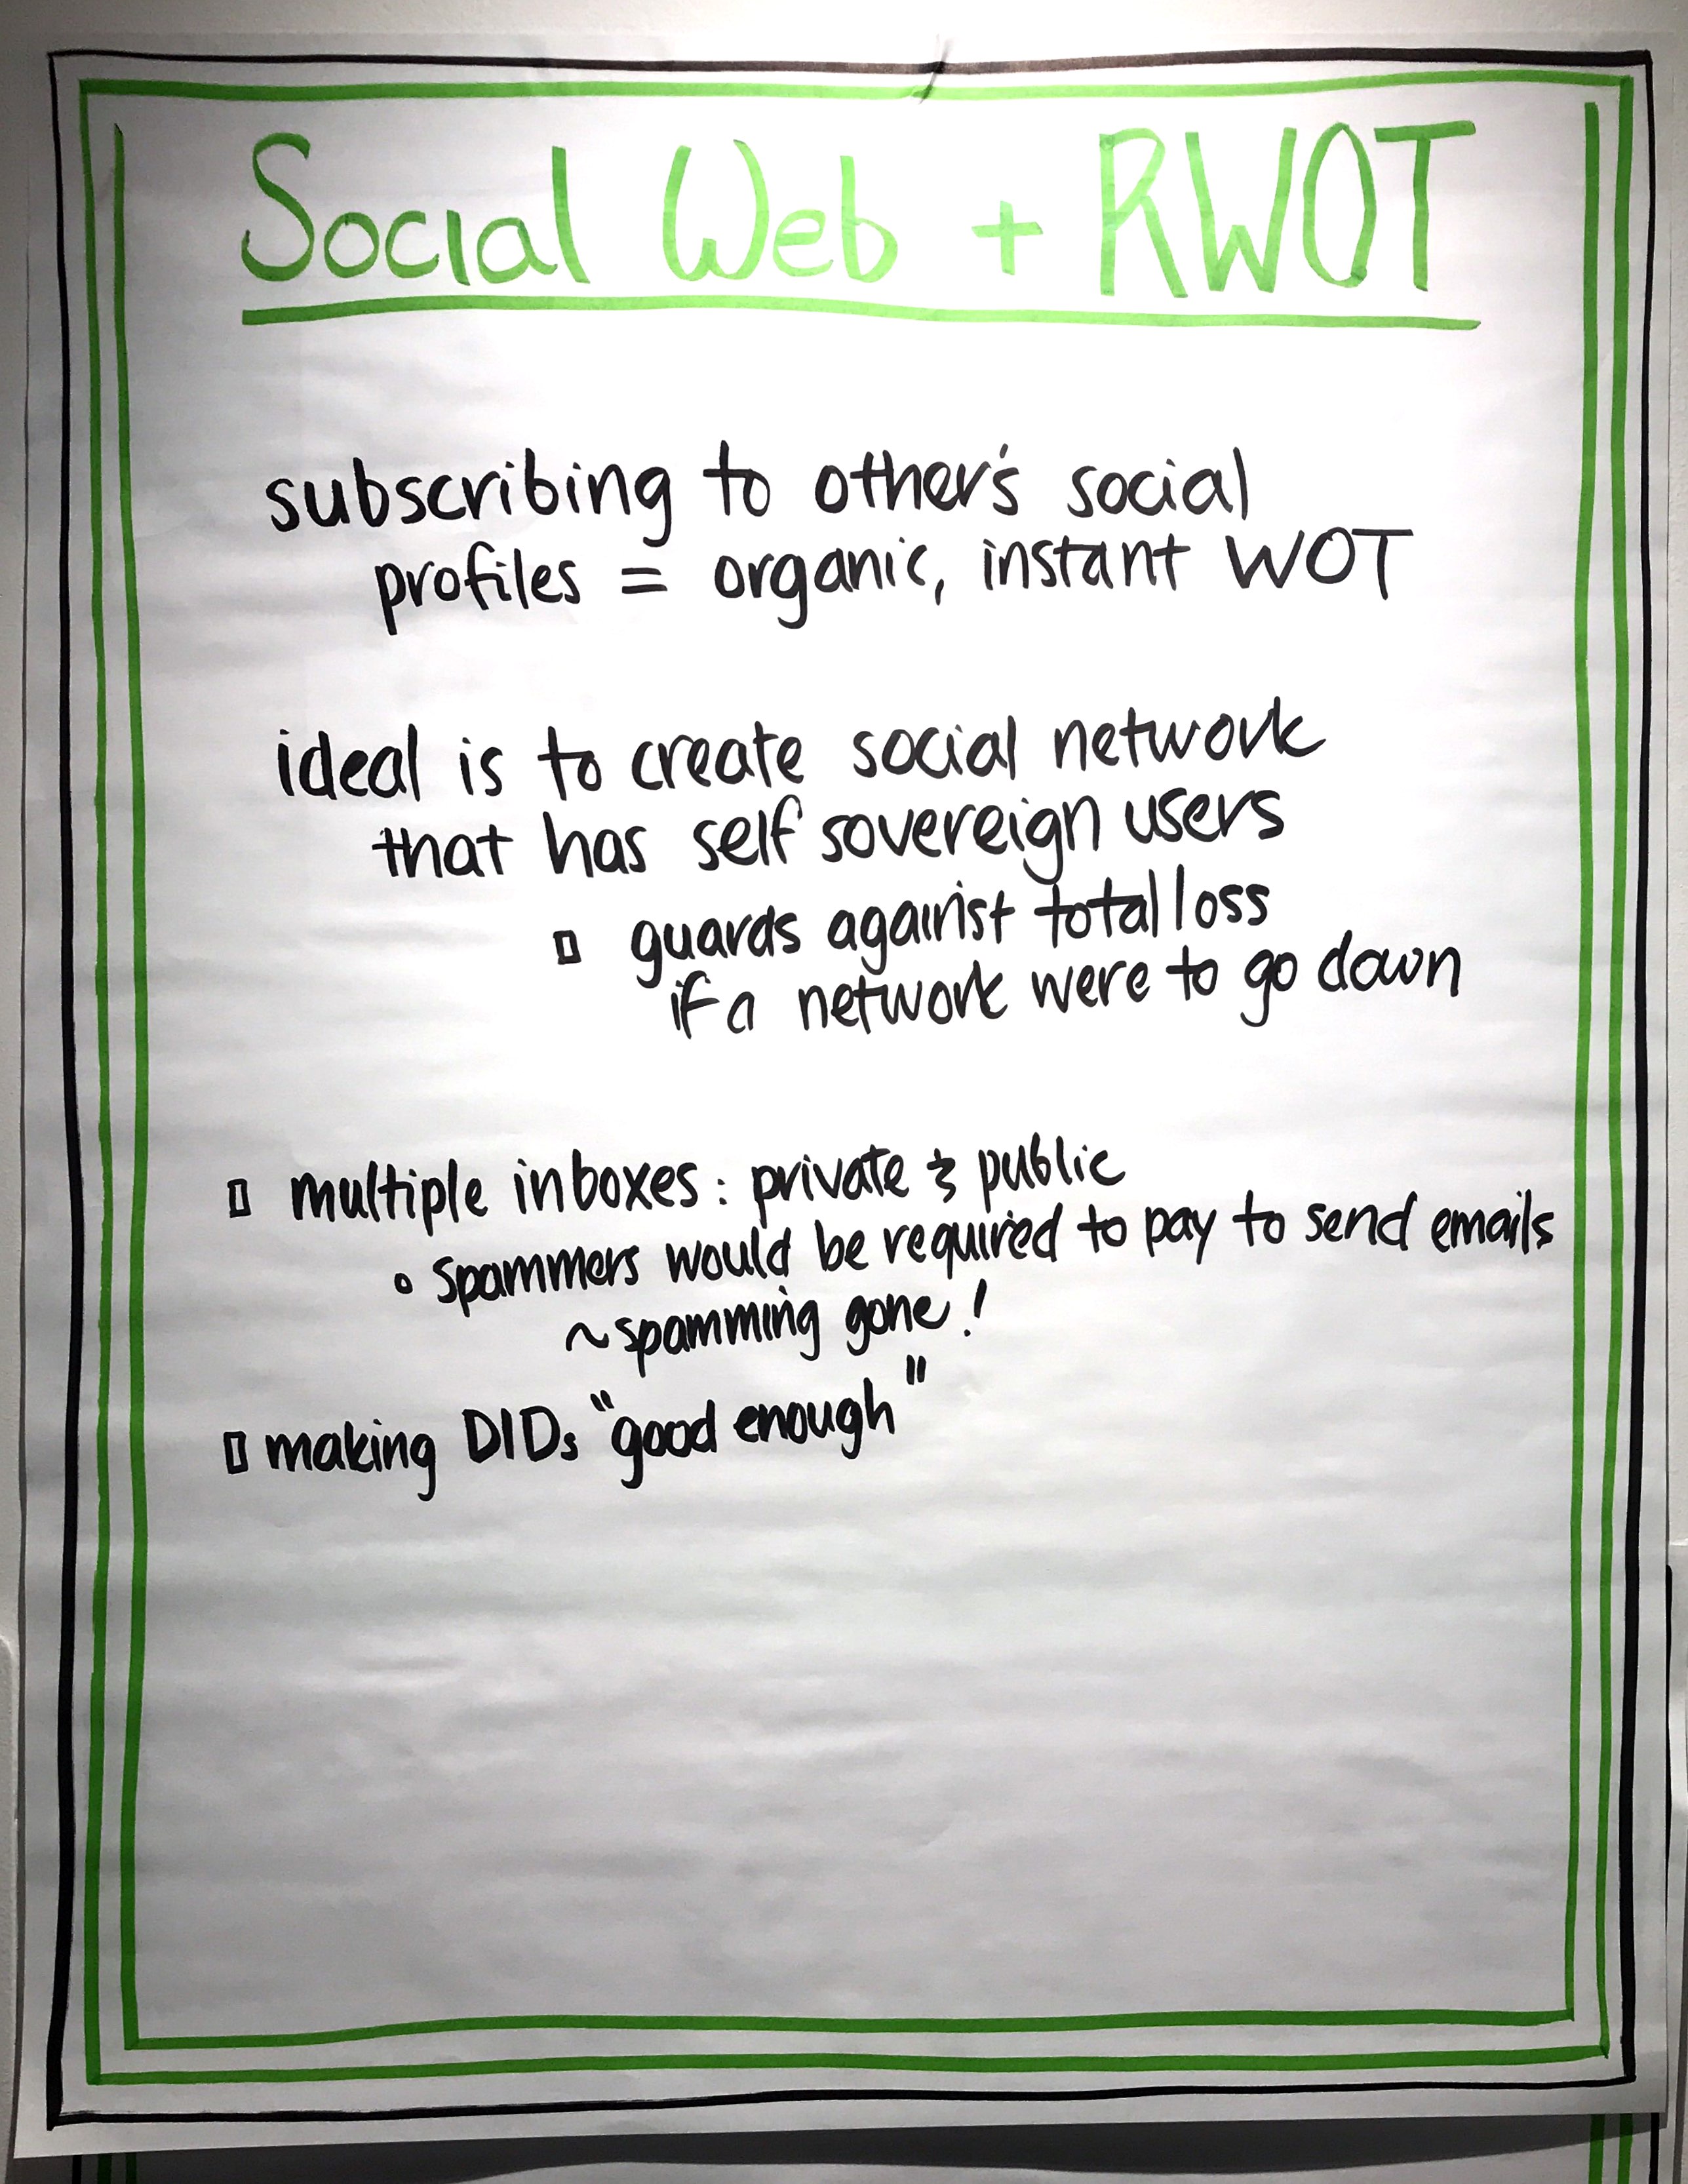 Social Web + RWOT
subscribing to other's social
profiles = organic, instant WOT
ideal is to create social network
that has self sovereign users
▯ guards against total loss
if a network were to go down
▯ multiple inboxes: private & public
• spammers would be required to pay to send emails
~spamming gone!
▯ making DIDs "good enough"